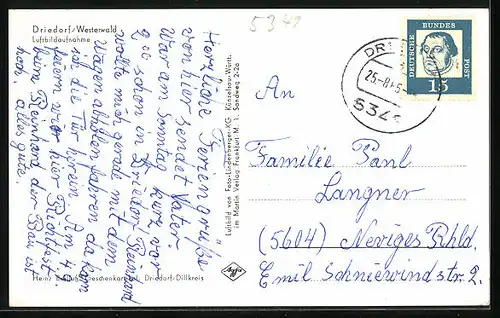 Driedorf/Westerwald
Luftbildaufnahme
5349
Herzliche Feriengrüße
von hier sendet Vater
War am Sonntag kurz vor
2 00 schon in Driedorf Reinhard
wollte mich gerade mit dem
Wagen abholen fahren da kam
ich die Tür herein Am 4.
feiern wir hier Richtfest
beim Reinhard der Bau ist
hoch, alles gute.
Luftbild von Foto-Lünzenberger-KG Künzelsau-Württ.
im Martin Verlag Frankfurt M. 1, Sandweg 2-26
Driedorf-Dillkreis
An
Familie Paul
Langner
(5604) Neviges Rhld.
Emil Schniewindstr. 2.
DEUTSCHE BUNDES POST
15
DR
25.-8.
534